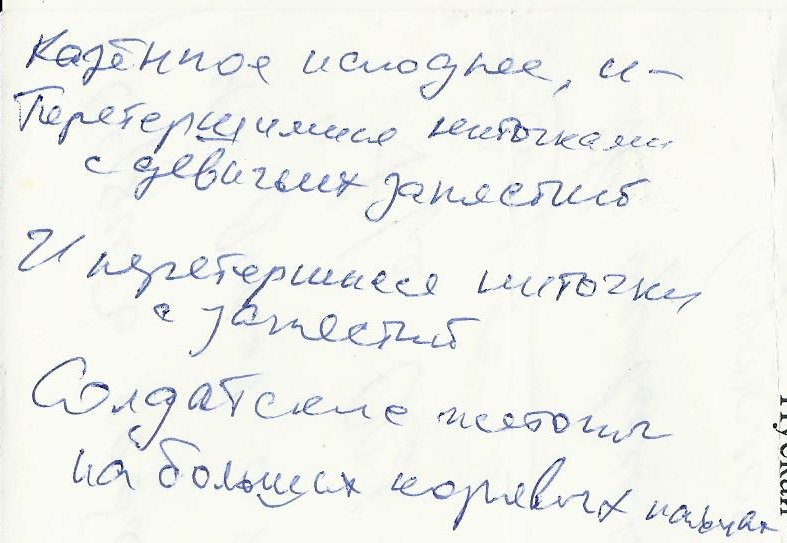 Казённое исподнее, и —
Перетершимися ниточками
с девичьих запястий
И перетершиеся ниточки
с запястий
Солдатские жетоны
на больших корявых пальцах
Пускай